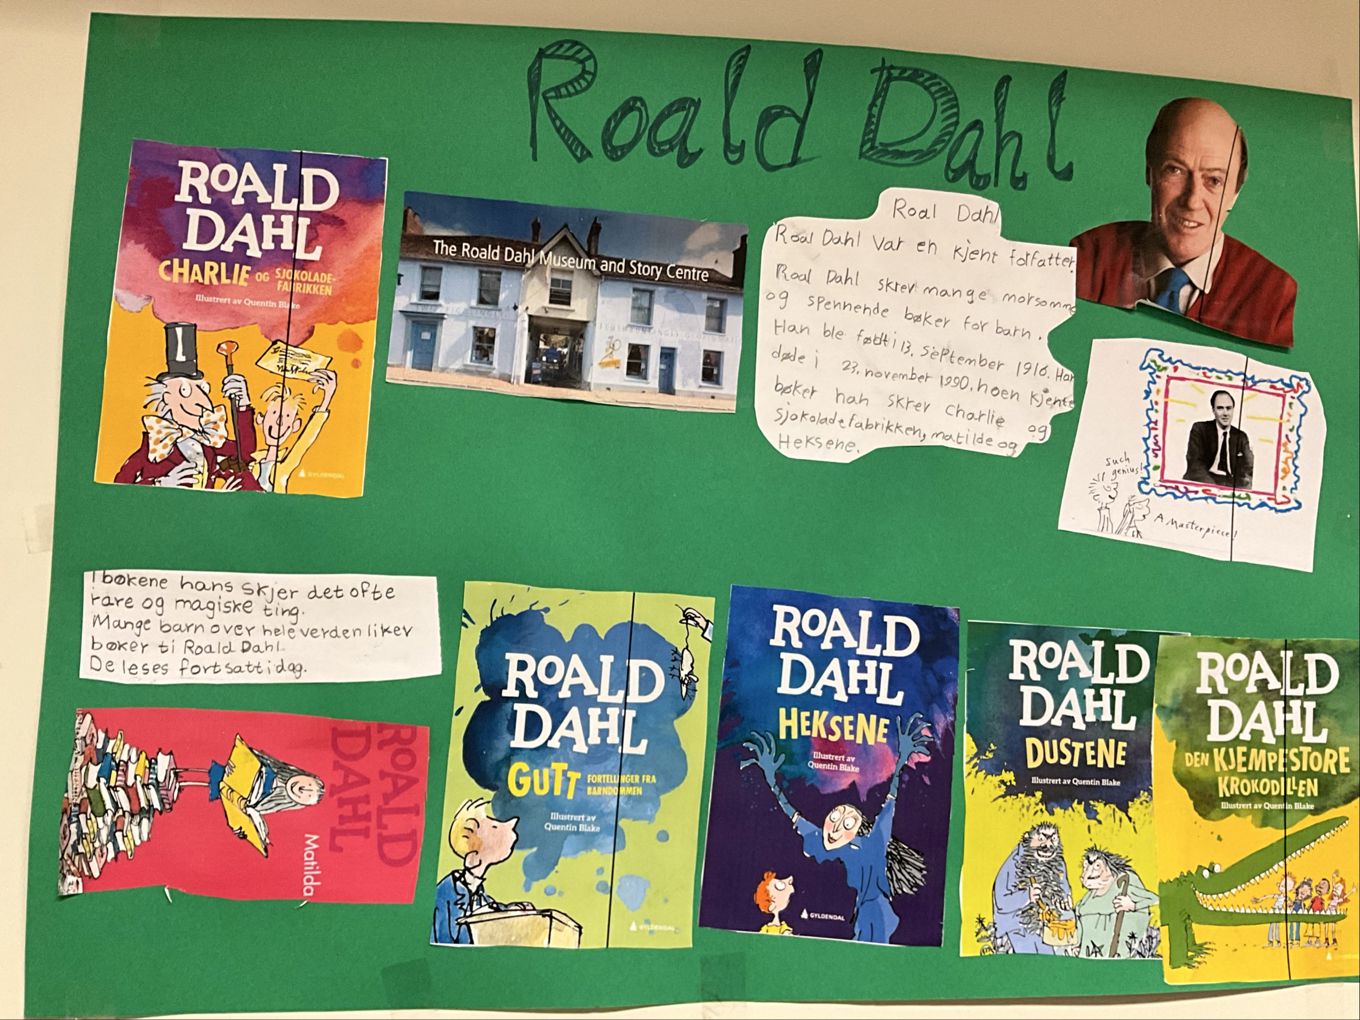 Roald Dahl
ROALD
DAHL
CHARLIE OG SJOKOLADE-
FABRIKKEN
Illustrert av Quentin Blake
GYLDENDAL
The Roald Dahl Museum and Story Centre
Roal Dahl
Roal Dahl var en kjent forfatter.
Roal Dahl skrev mange morsomme
og spennende bøker for barn.
Han ble født i 13. September 1916. Han
døde i 23. november 1990. noen kjente
bøker han skrev Charlie og
sjokoladefabrikken, matilde og
Heksene.
such
genius!
A Masterpiece!
I bøkene hans skjer det ofte
rare og magiske ting.
Mange barn over hele verden liker
bøker ti Roald Dahl.
De leses fortsatt idag.
ROALD
DAHL
Matilda
ROALD
DAHL
GUTT FORTELLINGER FRA
BARNDOMMEN
Illustrert av
Quentin Blake
GYLDENDAL
ROALD
DAHL
HEKSENE
Illustrert av
Quentin Blake
GYLDENDAL
ROALD
DAHL
DUSTENE
Illustrert av Quentin Blake
ROALD
DAHL
DEN KJEMPESTORE
KROKODILLEN
Illustrert av Quentin Blake
GYLDENDAL